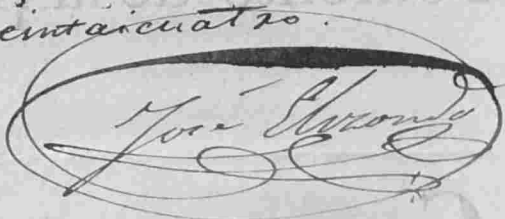 eintaicuatro.
José Elizondo